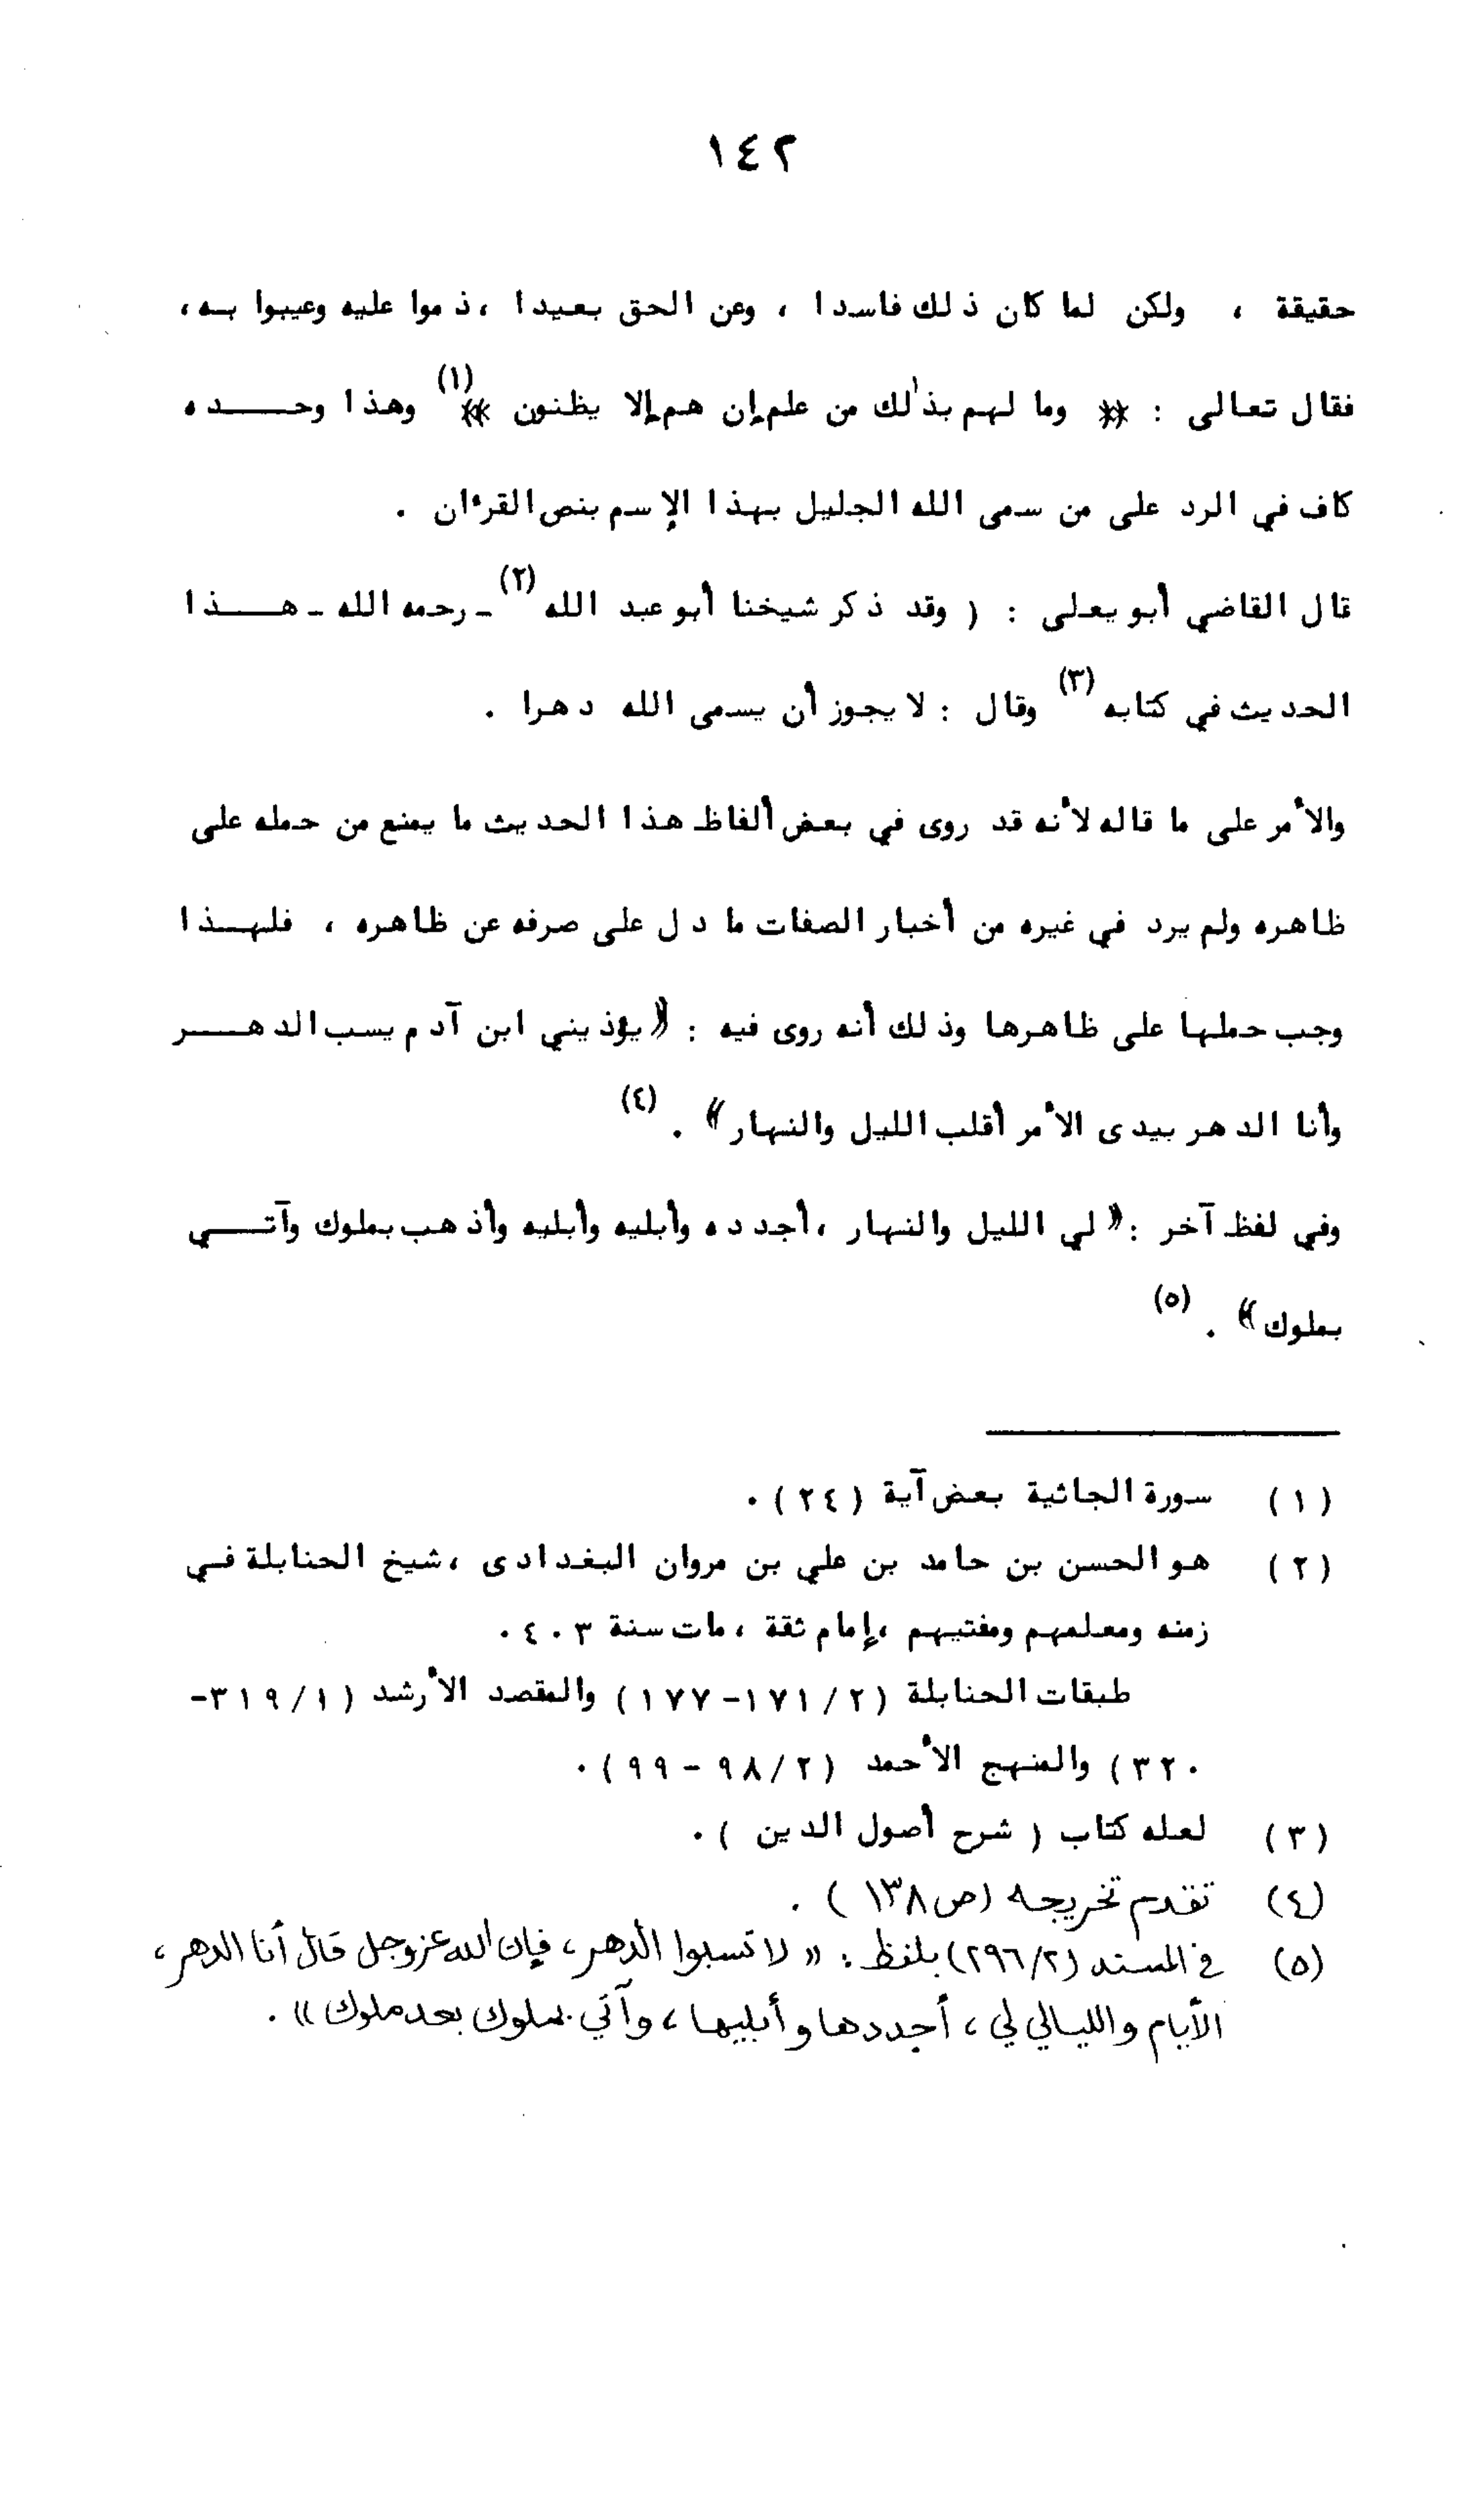 ١٤٢
حقيقة ، ولكن لما كان ذلك فاسدا ، وعن الحق بعيدا ، ذموا عليه وعيبوا به ،
فقال تعالى : ﴿ وما لهم بذلك من علم إن هم إلا يظنون ﴾ (١) وهذا وحده
كاف في الرد على من سمى الله الجليل بهذا الإسم بنص القرءان .
قال القاضي أبو يعلى : ( وقد ذكر شيخنا أبو عبد الله (٢) - رحمه الله - هذا
الحديث في كتابه (٣) وقال : لا يجوز أن يسمى الله دهرا .
والأمر على ما قاله لأنه قد روى في بعض ألفاظ هذا الحديث ما يمنع من حمله على
ظاهره ولم يرد في غيره من أخبار الصفات ما دل على صرفه عن ظاهره ، فلهذا
وجب حملها على ظاهرها وذلك أنه روى فيه : « يؤذيني ابن آدم يسب الدهر
وأنا الدهر بيدى الأمر أقلب الليل والنهار » . (٤)
وفي لفظ آخر : « لي الليل والنهار ، أجدده وأبليه وأبليه وأذهب بملوك وآتي
بملوك » . (٥)
(١) سورة الجاثية بعض آية (٢٤) .
(٢) هو الحسن بن حامد بن علي بن مروان البغدادى ، شيخ الحنابلة في
زمنه ومعلمهم ومفتيهم ، إمام ثقة ، مات سنة ٤٠٣ .
طبقات الحنابلة (٢/ ١٧١-١٧٧) والمقصد الأرشد (١/ ٣١٩-
٣٢٠) والمنهج الأحمد (٢/ ٩٨-٩٩) .
(٣) لعله كتاب ( شرح أصول الدين ) .
(٤) تقدم تخريجه (ص ١٣٨) .
(٥) في المسند (٢/ ٢٩٦) بلفظ : « لا تسبوا الدهر ، فإن الله عز وجل قال أنا الدهر ،
الأيام والليالي لي ، أجددها وأبليها ، وآتي بملوك بعد ملوك » .